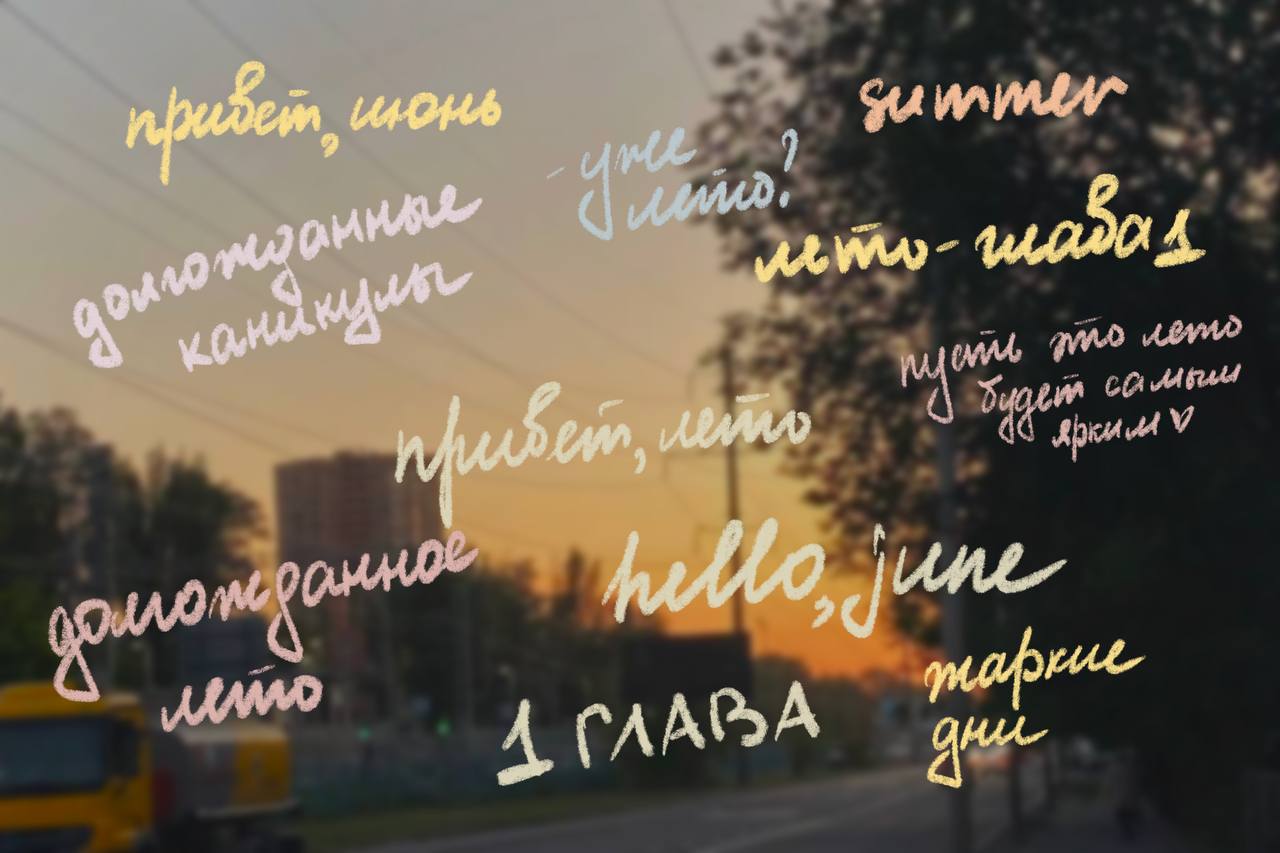 привет, июнь
summer
- уже
лето?
долгожданные
каникулы
лето - глава 1
пусть это лето
будет самым
ярким ♡
привет, лето
долгожданное
лето
hello, june
жаркие
дни
1 ГЛАВА